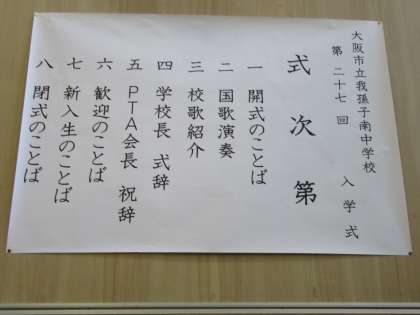 大阪市立我孫子南中学校
第二十七回 入学式
式次第
一 開式のことば
二 国歌演奏
三 校歌紹介
四 学校長 式辞
五 PTA会長 祝辞
六 歓迎のことば
七 新入生のことば
八 閉式のことば